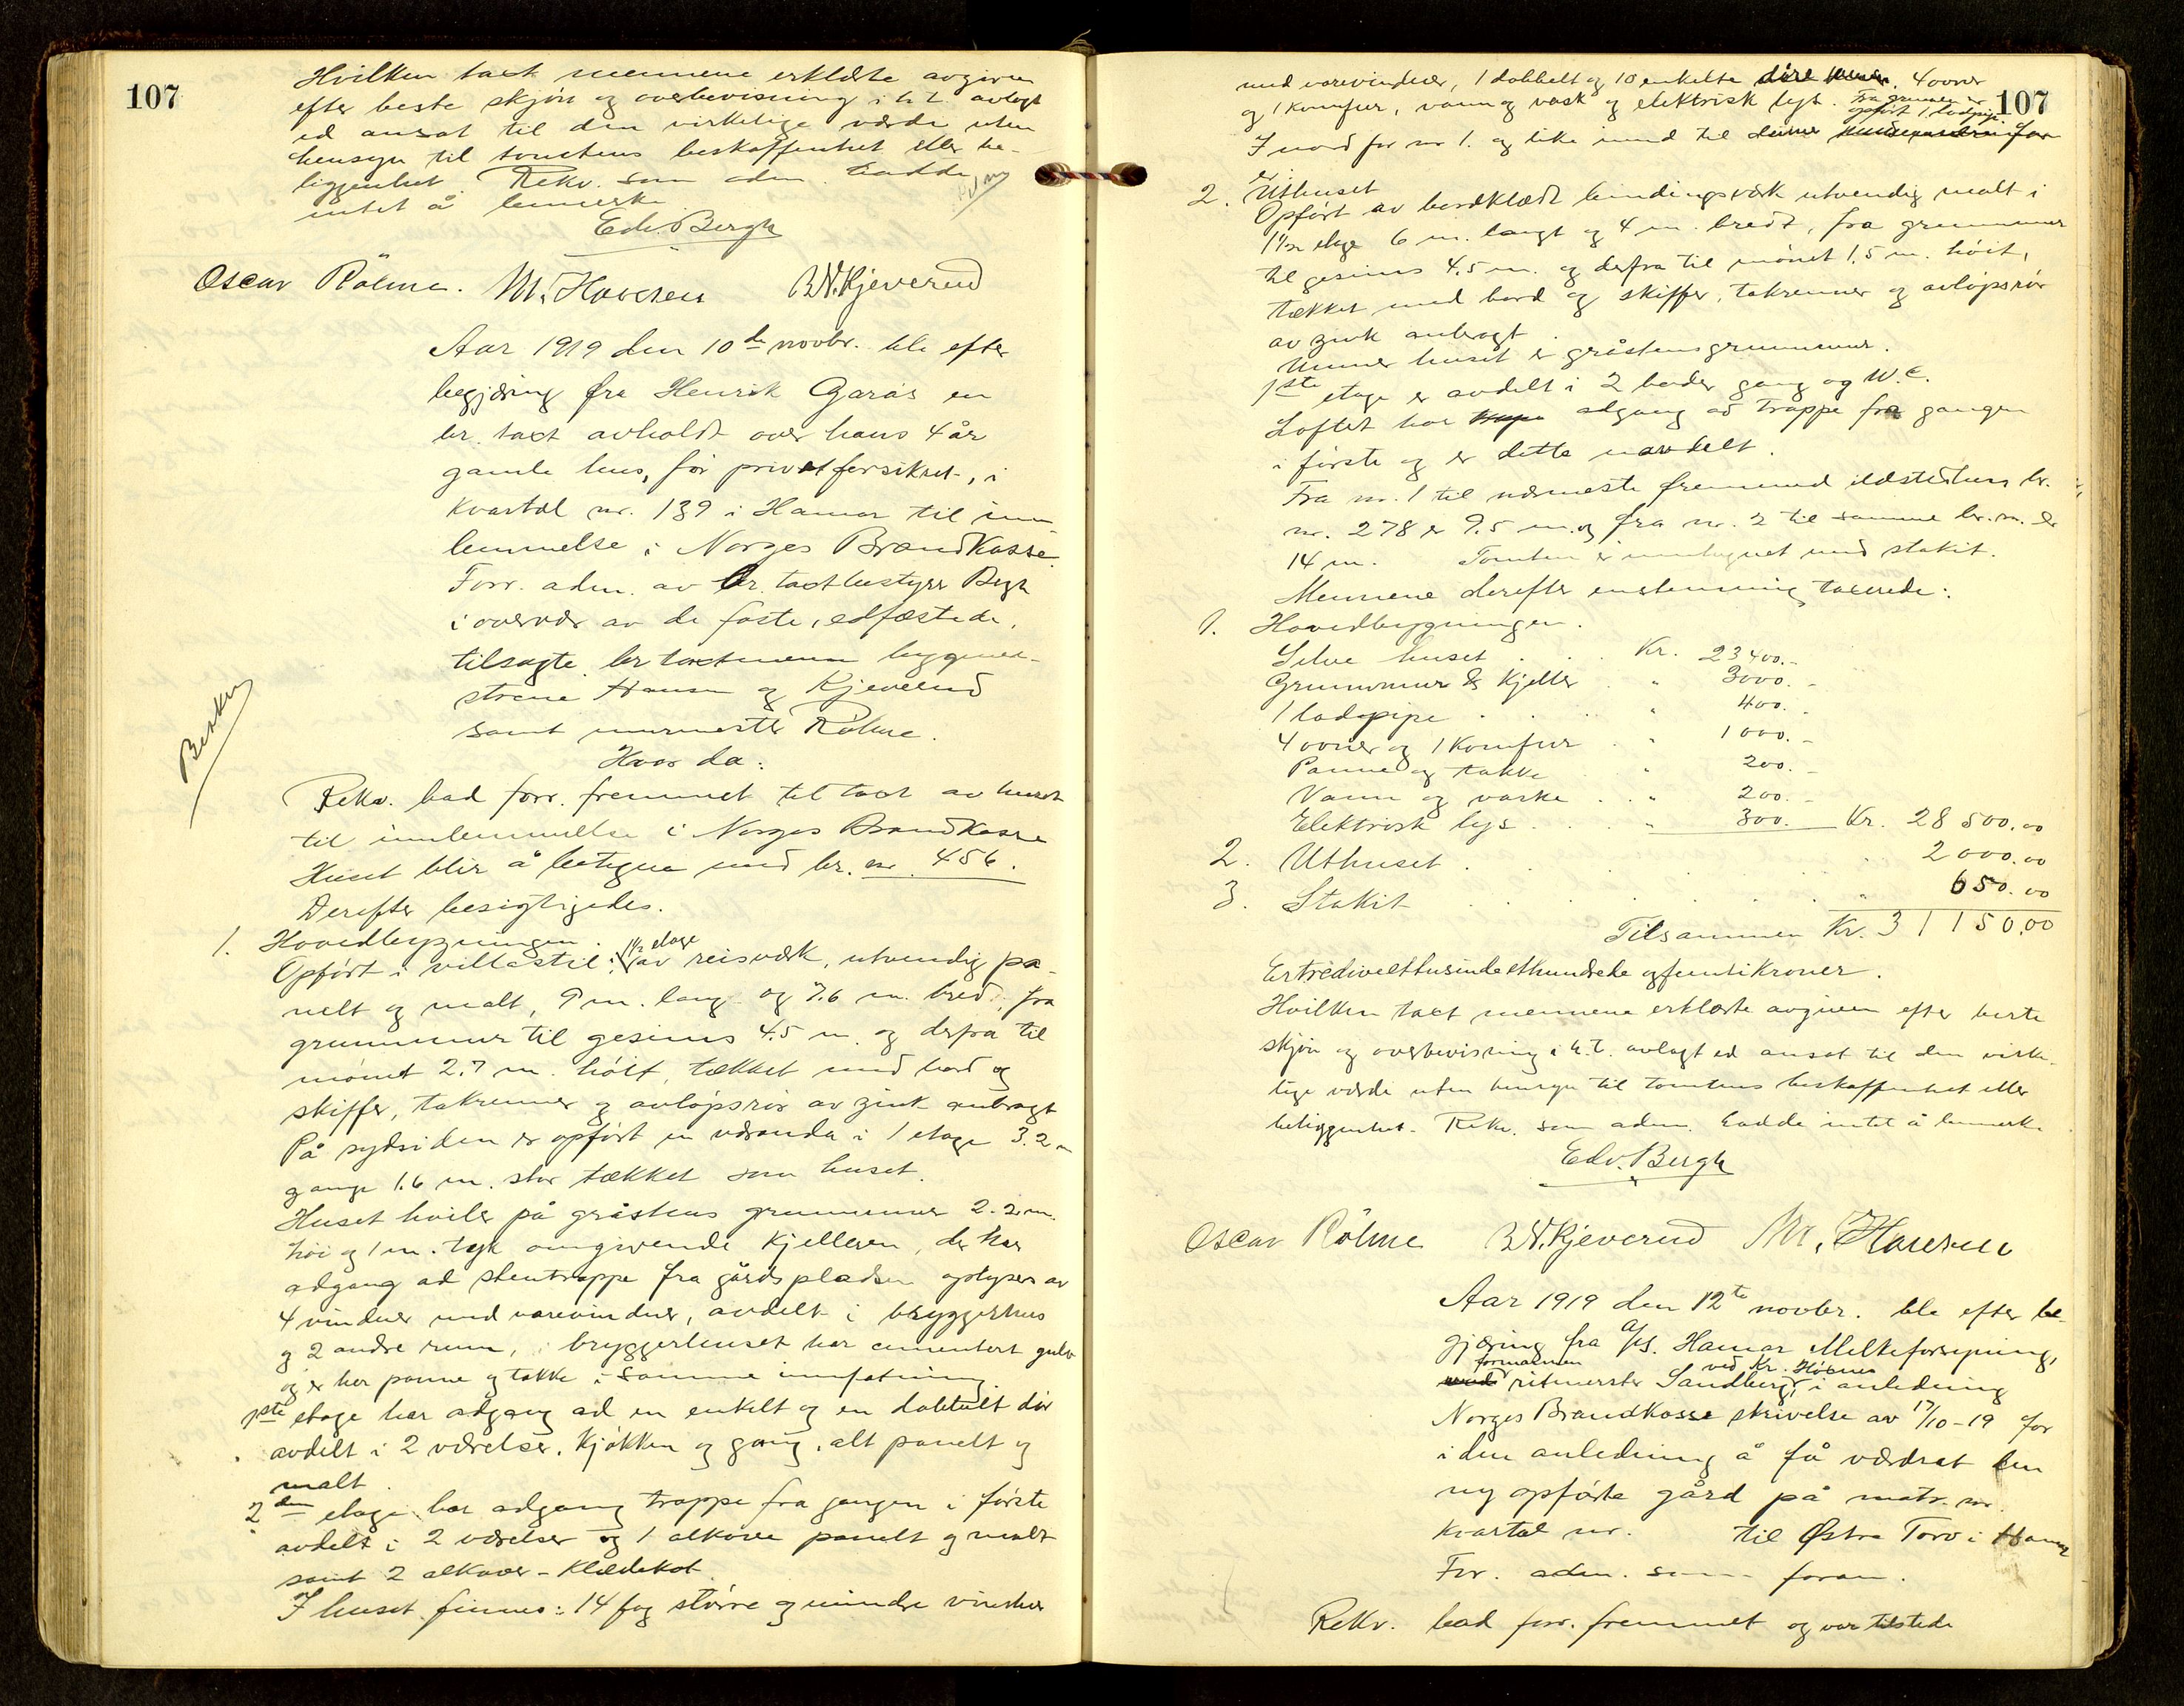 107
Hvilken taxt mennene erklærte avgiven
efter beste skjön og overbevisning i h. t. avlagt
ed ansat til den virkelige værde uten
hensyn til tomtens beskaffenhet eller be-
liggenhet. Rekv. som adm. hadde
intet å bemerke
Edv. Bergh
Oscar Rölme. M. Hansen B.N. Kjeverud
Aar 1919 den 10de novbr. ble efter
begjæring fra Henrik Garås en
br. taxt avholdt over hans 4 år
gamle hus, för privat forsikret, i
Kvartal nr. 139 i Hamar til inn-
lemmelse i Norges BrandKasse.
Forr. adm. av br. taxtbestyrer Bergh
i overvær av de faste, edfæstede,
tilsagte br taxtmenn byggmes-
strene Hansen og Kjeverud
samt murmester Rölme.
Hvor da:
Besku
Rekv. bad forr. fremmet til taxt av huset
til innlemmelse i Norges BrandKasse
Huset blir å betegne med br. nr. 456.
Derefter besigtigedes.
1. Hovedbygningen.
Opfört i villastil i 1½ etage av reisværk, utvendig pa-
nelt og malt, 9 m. lang og 7.6 m. bred, fra
grunnmur til gesims 4.5 m. og derfra til
mönet 2.7 m. höit, tækket med bord og
skiffer, takrenner og avlöpsrör av zink anbragt
På sydsiden er opfört en veranda i 1 etage 3.2 m
gange 1.6 m. stor tækket som huset.
Huset hviler på gråstens grunnmur 2.2 m.
höi og 1 m. tyk omgivende Kjelleren, der har
adgang ad stentrappe fra gårdspladsen oplyses av
4 vinduer med varevinduer, avdelt i bryggerhus
og 2 andre rum, i bryggerhuset har cementert gulv
og er her panne og takke i samme innfatning.
1ste etage har adgang ad en enkelt og en dobbelt dör
avdelt i 2 værelser, Kjökken og gang, alt panelt og
malt.
2den etage har adgang trappe fra gangen i förste
avdelt i 2 værelser og 1 alkove panelt og malt
samt 2 alkover - Klædekot.
I huset finnes: 14 fag större og mindre vinduer
107
med varevinduer, 1 dobbelt og 10 enkelte döre 4 ovner
og 1 komfur, vann og vask og elektrisk lys. Fra grunnen er
opfört 1 ladepipe
I nord for nr 1. og like innd til denne for
er
2. Uthuset
Opfört av bordklædt bindingsværk utvendig malt i
1½ etage 6 m. langt og 4 m. bredt, fra grunnmur
til gesims 4,5 m. og derfra til mönet 1.5 m. höit,
tækket med bord og skiffer, takrenner og avlöpsrör
av zink anbragt.
Under huset er gråstensgrunnmur.
1ste etage er avdelt i 2 boder gang og W.C.
Loftet har adgang ad trappe fra gangen
i förste og er dette uavdelt.
Fra nr. 1 til nærmeste fremmed ildstedshus br.
nr. 278 er 9.5 m. og fra nr. 2 til samme br. nr. er
14 m. Tomten er innhegnet med stakit.
Mennene derefter enstemmig taxerede:
1. Hovedbygningen.
Selve huset . . . Kr. 23400.-
Grunnmur & Kjeller . " 3000.-
1 ladepipe . . . " 400.-
4 ovner og 1 Komfur . " 1000.-
Panne og takke . " 200.-
Vann og vaske . . " 200.-
Elektrisk lys . . . " 300. Kr. 28 500.00
2. Uthuset . . . . . . 2000.00
3. Stakit . . . . . . " 650.00
Tilsammen Kr. 31150.00
Er trediveettusindeethundrede og femti Kroner.
Hvilken taxt mennene erklærte avgiven efter beste
skjön og overbevisning i h.t. avlagt ed ansat til den virke-
lige værde uten hensyn til tomtens beskaffenhet eller
beliggenhet. Rekv. som adm. hadde intet å bemerke
Edv. Bergh
Oscar Rölme B.N. Kjeverud M. Hansen
Aar 1919 den 12te novbr. ble efter be-
gjæring fra A/S. Hamar Melkeforsyning,
formannen ritmester Sandberg, ved Kr. i anledning
Norges BrandKasse skrivelse av 17/10-19 for
i den anledning å få værdsat den
ny opförte gård på matr. nr.
Kvartal nr. til Østre Torv i Hamar
For. adm. som foran.
Rekv. bad forr. fremmet og var tilstede